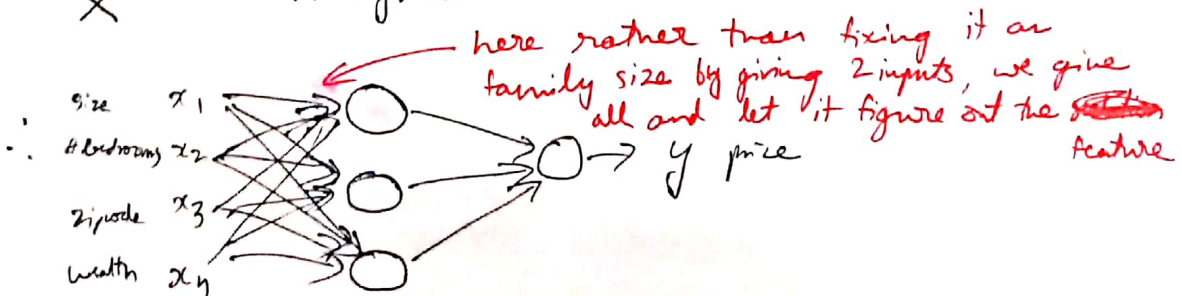 here rather than fixing it as
family size by giving 2 inputs, we give
all and let it figure out the
feature
size x1
∴ # bedrooms x2
zipcode x3
wealth x4
y price